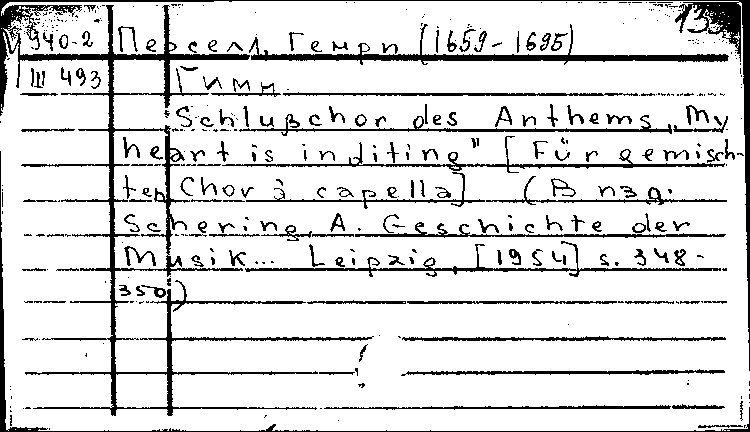 940-2 Перселл, Генри (1659-1695)
Ш 493 Гимн.
Schlußchor des Anthems „My
heart is inditing" [Für gemisch-
ten Chor à capella] (В изд.
Schering, A. Geschichte der
Musik... Leipzig, [1954] s. 348-
350)